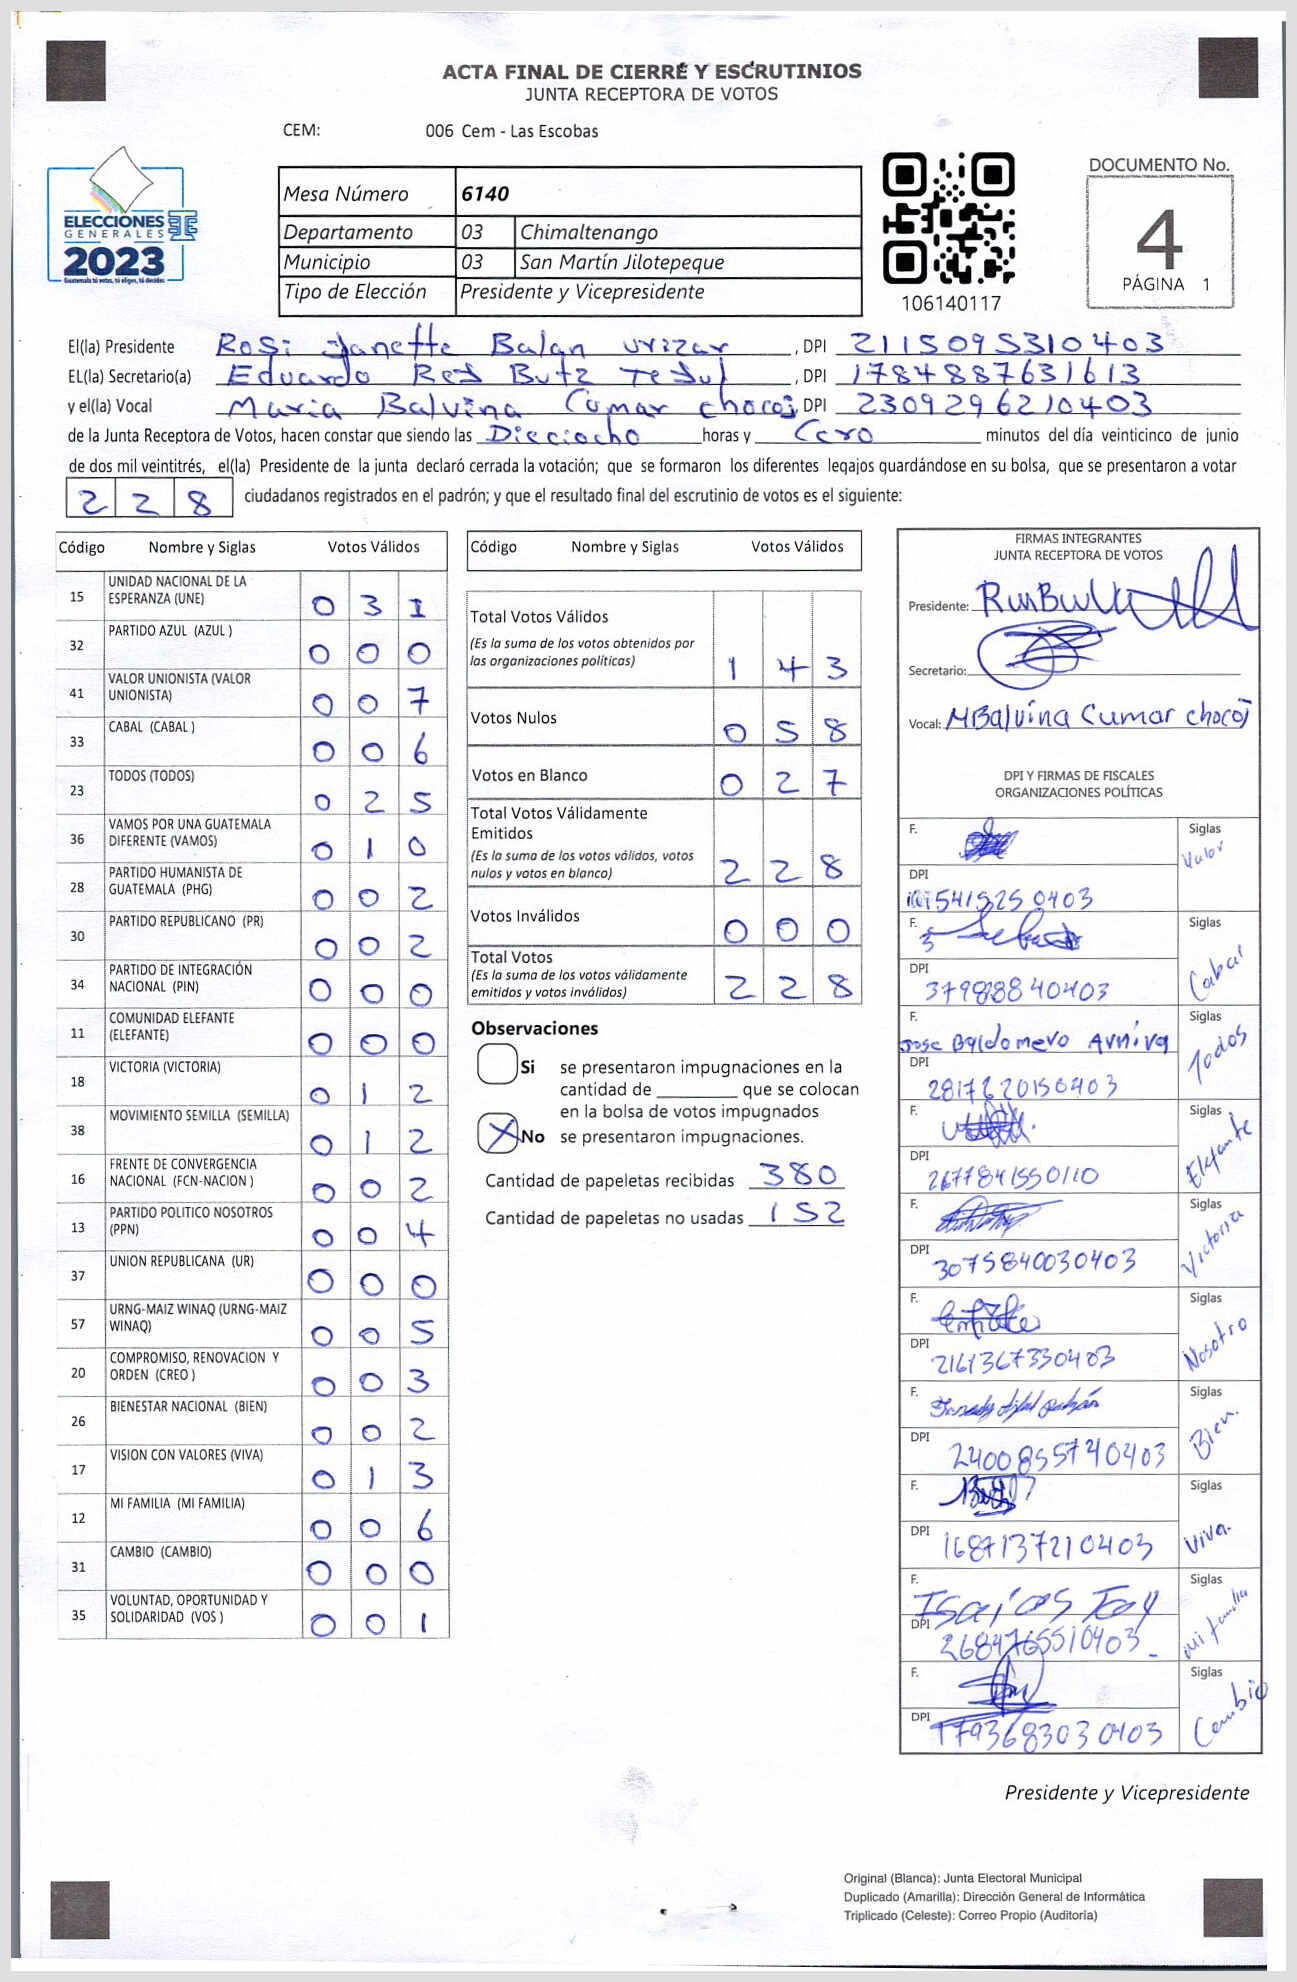 ACTA FINAL DE CIERRE Y ESCRUTINIOS
JUNTA RECEPTORA DE VOTOS
CEM: 006 Cem - Las Escobas
ELECCIONES
GENERALES
2023
Guatemala tú votas, tú eliges, tú decides
Mesa Número 6140
Departamento 03 Chimaltenango
Municipio 03 San Martín Jilotepeque
Tipo de Elección Presidente y Vicepresidente
106140117
DOCUMENTO No.
4
PÁGINA 1
El(la) Presidente Rosi Janette Balan Urizar , DPI 2115095310403
EL(la) Secretario(a) Eduardo , DPI 1784887631613
y el(la) Vocal Maria Balvina Cumar chocoj, DPI 2309296210403
de la Junta Receptora de Votos, hacen constar que siendo las Dieciocho horas y Cero minutos del día veinticinco de junio
de dos mil veintitrés, el(la) Presidente de la junta declaró cerrada la votación; que se formaron los diferentes legajos guardándose en su bolsa, que se presentaron a votar
228 ciudadanos registrados en el padrón; y que el resultado final del escrutinio de votos es el siguiente:
Código Nombre y Siglas Votos Válidos
15 UNIDAD NACIONAL DE LA ESPERANZA (UNE) 0 3 1
32 PARTIDO AZUL (AZUL ) 0 0 0
41 VALOR UNIONISTA (VALOR UNIONISTA) 0 0 7
33 CABAL (CABAL ) 0 0 6
23 TODOS (TODOS) 0 2 5
36 VAMOS POR UNA GUATEMALA DIFERENTE (VAMOS) 0 1 0
28 PARTIDO HUMANISTA DE GUATEMALA (PHG) 0 0 2
30 PARTIDO REPUBLICANO (PR) 0 0 2
34 PARTIDO DE INTEGRACIÓN NACIONAL (PIN) 0 0 0
11 COMUNIDAD ELEFANTE (ELEFANTE) 0 0 0
18 VICTORIA (VICTORIA) 0 1 2
38 MOVIMIENTO SEMILLA (SEMILLA) 0 1 2
16 FRENTE DE CONVERGENCIA NACIONAL (FCN-NACION ) 0 0 2
13 PARTIDO POLITICO NOSOTROS (PPN) 0 0 4
37 UNION REPUBLICANA (UR) 0 0 0
57 URNG-MAIZ WINAQ (URNG-MAIZ WINAQ) 0 0 5
20 COMPROMISO, RENOVACION Y ORDEN (CREO ) 0 0 3
26 BIENESTAR NACIONAL (BIEN) 0 0 2
17 VISION CON VALORES (VIVA) 0 1 3
12 MI FAMILIA (MI FAMILIA) 0 0 6
31 CAMBIO (CAMBIO) 0 0 0
35 VOLUNTAD, OPORTUNIDAD Y SOLIDARIDAD (VOS ) 0 0 1
Código Nombre y Siglas Votos Válidos
Total Votos Válidos
(Es la suma de los votos obtenidos por
las organizaciones políticas) 1 4 3
Votos Nulos 0 5 8
Votos en Blanco 0 2 7
Total Votos Válidamente
Emitidos
(Es la suma de los votos válidos, votos
nulos y votos en blanco) 2 2 8
Votos Inválidos 0 0 0
Total Votos
(Es la suma de los votos válidamente
emitidos y votos inválidos) 2 2 8
Observaciones
Si se presentaron impugnaciones en la
cantidad de ________ que se colocan
en la bolsa de votos impugnados
X No se presentaron impugnaciones.
Cantidad de papeletas recibidas 380
Cantidad de papeletas no usadas 152
FIRMAS INTEGRANTES
JUNTA RECEPTORA DE VOTOS
Presidente:
Secretario:
Vocal: MBalvina Cumar chocoj
DPI Y FIRMAS DE FISCALES
ORGANIZACIONES POLÍTICAS
F. Siglas Valor
DPI
F. Siglas Cabal
DPI
F. Jose Baldomero Siglas Todos
DPI
F. Siglas Elefante
DPI 2677841550110
F. Siglas Victoria
DPI 3075840030403
F. Siglas Nosotro
DPI 2161367330403
F. Siglas Bien.
DPI 2400855740403
F. Siglas Viva.
DPI 1687137210403
F. Isaias Siglas mi familia
DPI 2684765510403
F. Siglas Cambio
DPI 1793683030403
Presidente y Vicepresidente
Original (Blanca): Junta Electoral Municipal
Duplicado (Amarilla): Dirección General de Informática
Triplicado (Celeste): Correo Propio (Auditoría)